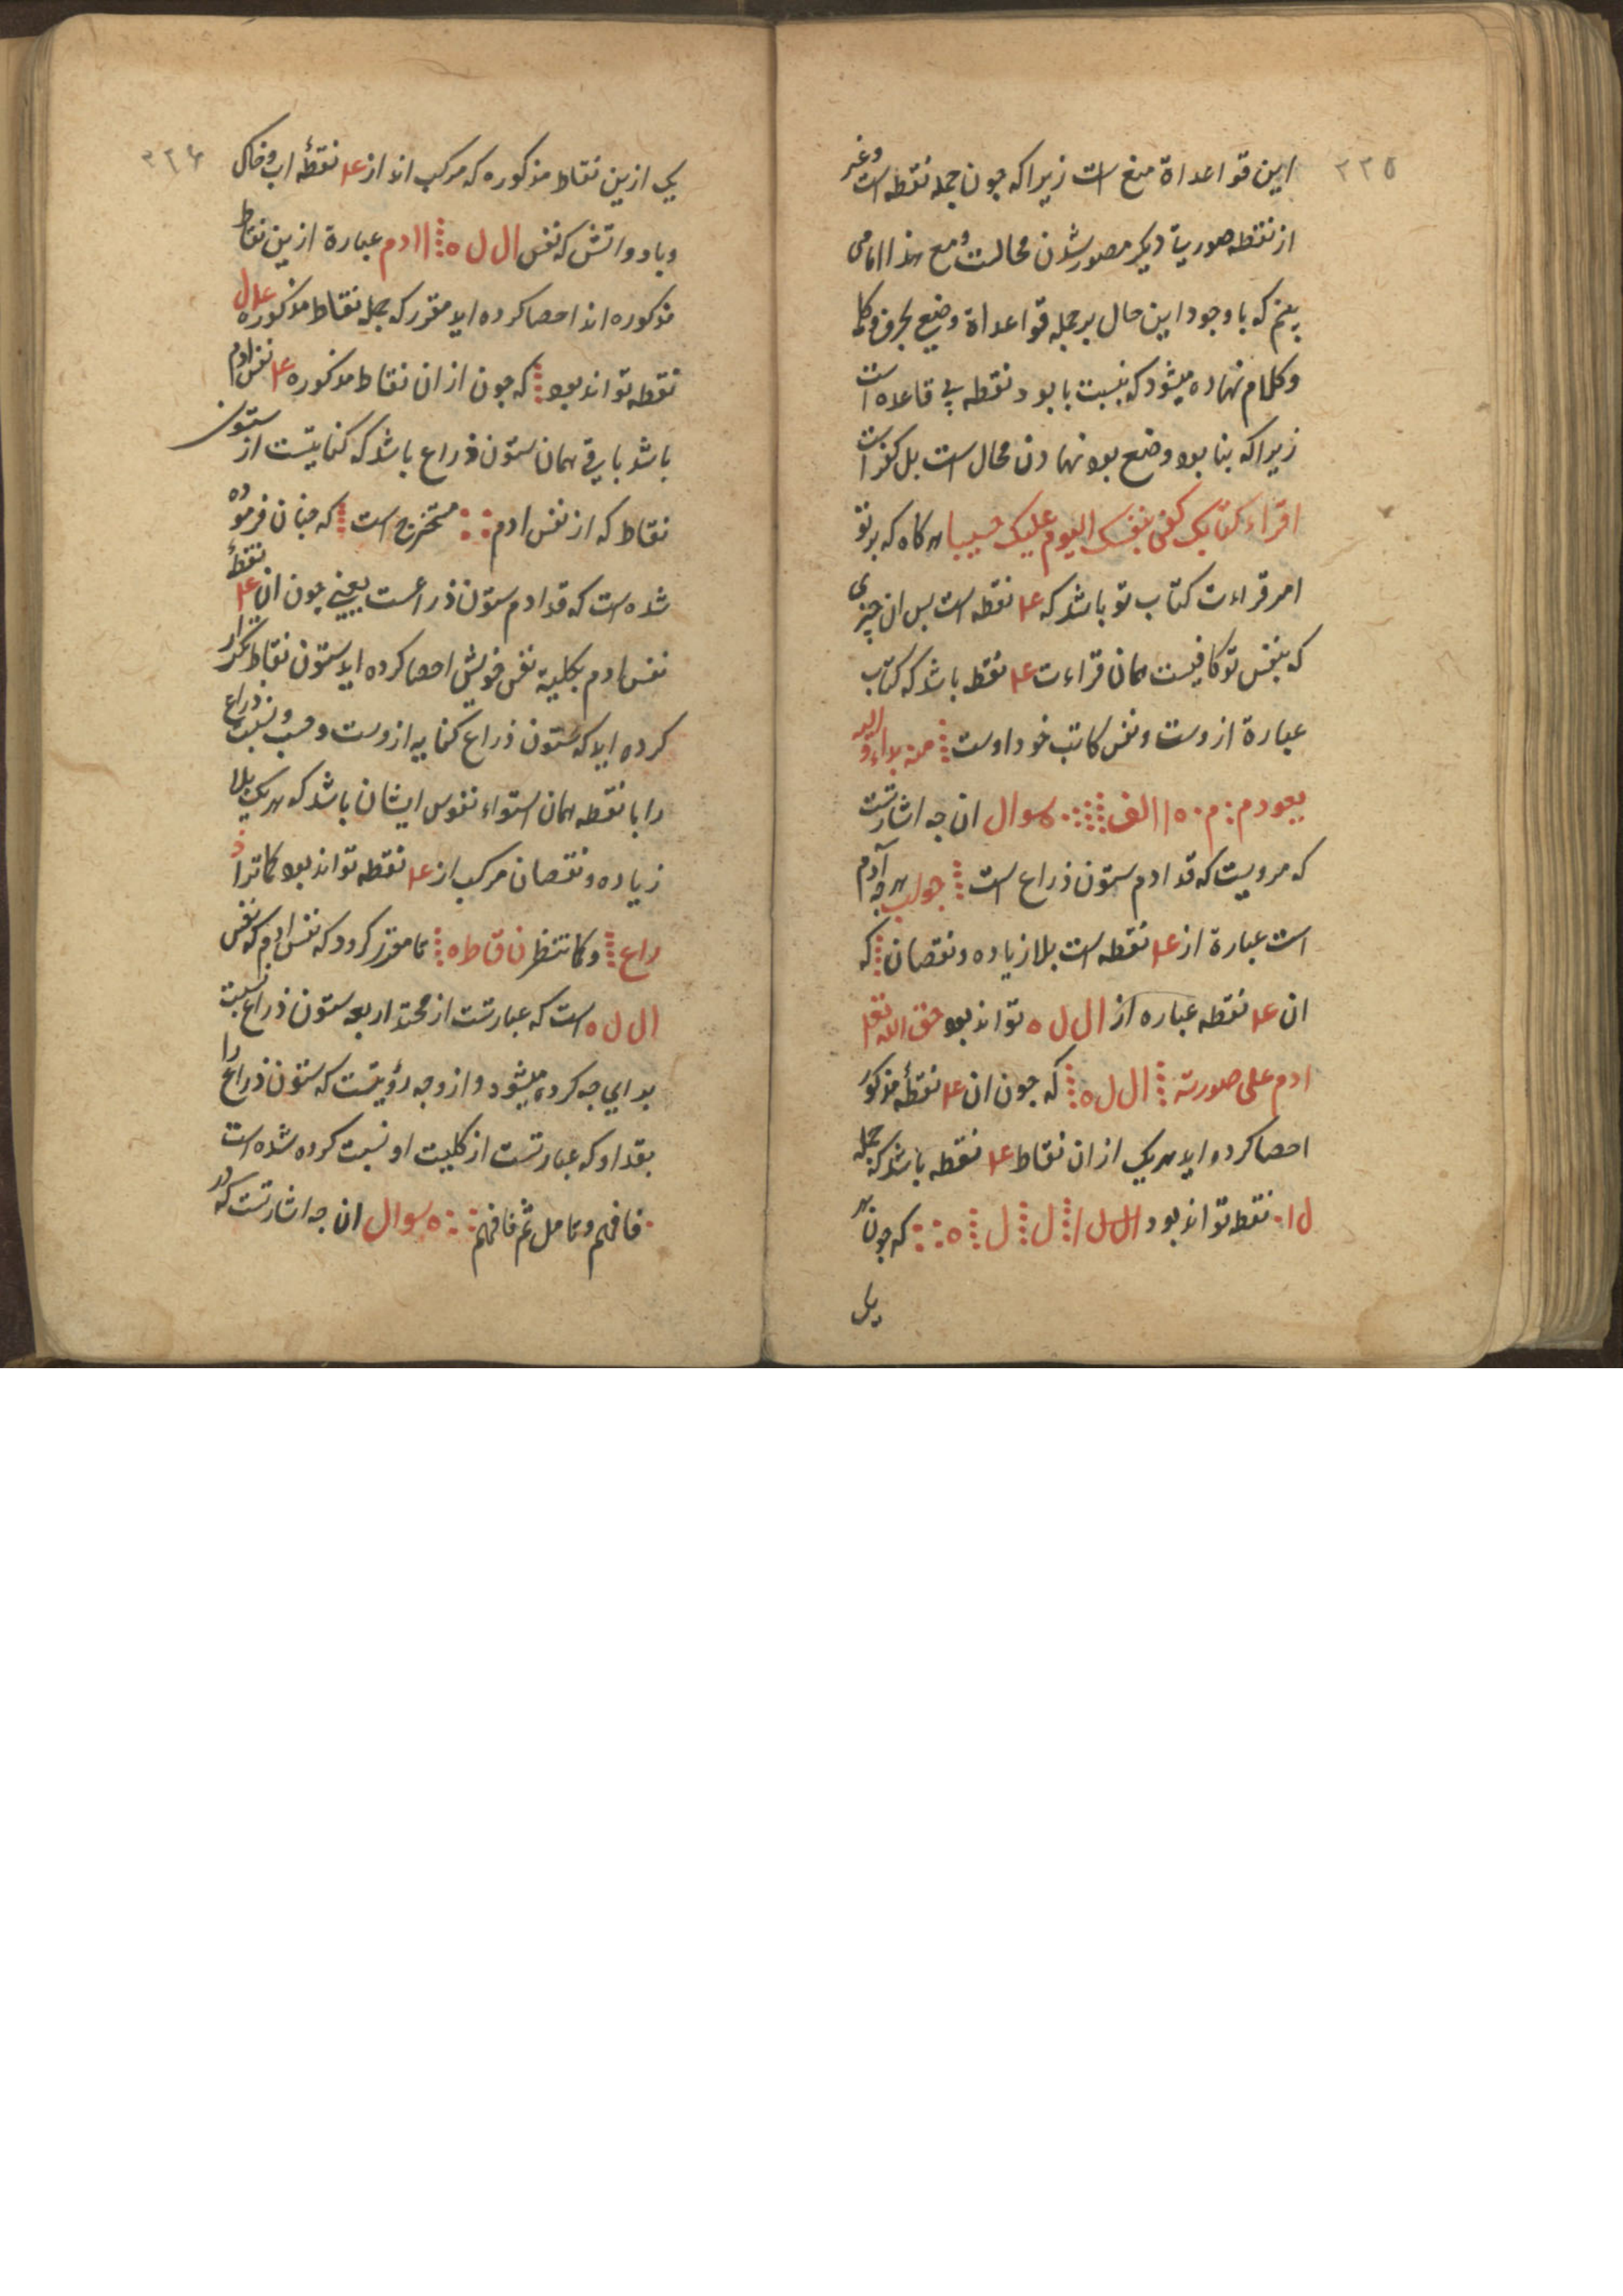 ۲۲۵
این قواعداة منع است زیرا که جون جمله نقطه است وغیر
از نقطه صوریاة دیکر مصور شدن محالست ومع هذا امامی
بینم که با وجود این حال بر جمله قواعداة وضع بحرف و کلمه
وکلام نهاده میشود که بنسبت با بود نقطه بی قاعده است
زیرا که بنا بود وضع بود نهادن محال است بل کفر است
اقراء کتابک کفی بنفسک الیوم علیک حسیبا هرکاه که بر تو
امر قراءت کتاب تو باشد که ۴ نقطه است بس ان چیزی
که بنفس تو کافیست همان قراءت ۴ نقطه باشد که کتاب
عبارة ازوست ونفس کاتب خود اوست منه بداء و الیه
یعود م م ه ا الف سوال ان جه اشارتست
که مرویست که قد ادم ستون ذراع است جواب هرجه آدم
است عبارة از ۴ نقطه است بلا زیاده ونقصان که
ان ۴ نقطه عباره از ال ل ه تواند بود خلق الله تعا
ادم علی صورته ال ل ه که جون ان ۴ نقطهٔ مذکور
احصا کرده اید هریک از ان نقاط ۴ نقطه باشد که جمله
نقطه تواند بود ال ل ا ل ل ه که جون هر
یک
۲۲۶
یکی ازین نقاط مذکوره که مرکب اند از ۴ نقطهٔ اب وخاک
وباد واتش که نفس ال ل ه ا ادم عبارة ازین نقاط
مذکوره اند احصا کرده اید مقرر که جمله نقاط مذکوره
نقطه تواند بود که جون از ان نقاط مذکوره ۴ نفس ادم
باشد باقی همان ستون ذراع باشد که کنایتست از ستون
نقاط که از نفس ادم مستخرج است که جنان فرموده
شده است که قد ادم ستون ذراعست یعنی جون ان ۴ نقطهٔ
نفس ادم بکلیة نفس خویش احصا کرده اید ستون نقاط تکرار
کرده اید که ستون ذراع کنایه ازوست ونسبت ذراع
را با نقطه همان استواء نفوس ایشان باشد که هریک بلا
زیاده ونقصان مرکب از ۴ نقطه تواند بود کاترا ذ
راع وکاتنظر ن ق ا ط ه تا مقرر کردد که نفس ادم که نفس
ال ل ه است که عبارتست از محمد اربعه ستون ذراع نسبت
بدایی جه کرده میشود واز وجه رؤیتست که ستون ذراع را
بقد او که عبارتست از کلیت او نسبت کرده شده است
فافهم وتامل ثم فافهم سوال ان جه اشارتست که در